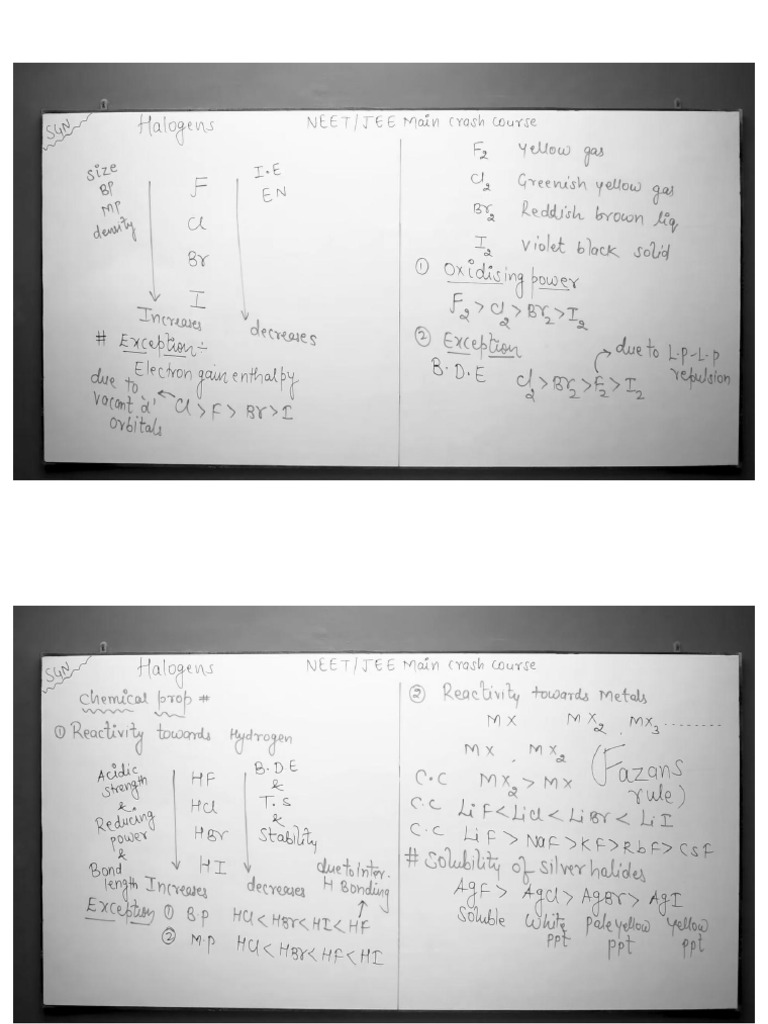 SGN
Halogens
NEET/JEE Main crash course
size
BP
MP
density
F
Cl
Br
I
Increases
I.E
EN
decreases
# Exception :-
Electron gain enthalpy
due to
vacant 'd'
orbitals
Cl > F > Br > I
F2 Yellow gas
Cl2 Greenish yellow gas
Br2 Reddish brown liq
I2 violet black solid
① Oxidising power
F2 > Cl2 > Br2 > I2
② Exception
B.D.E
Cl2 > Br2 > F2 > I2
due to L.P-L.P
repulsion
SGN
Halogens
NEET/JEE Main crash course
Chemical prop #
① Reactivity towards Hydrogen
Acidic
strength
&
Reducing
power
&
Bond
length
Increases
HF
HCl
HBr
HI
B.D.E
&
T.S
&
Stability
decreases
due to Inter.
H Bonding
Exception ① B.p HCl < HBr < HI < HF
② M.p HCl < HBr < HF < HI
② Reactivity towards Metals
MX MX2 , MX3 ........
MX , MX2
(Fazans
rule)
C.C MX2 > MX
C.C LiF < LiCl < LiBr < LiI
C.C LiF > NaF > KF > RbF > CsF
# Solubility of silver halides
AgF > AgCl > AgBr > AgI
Soluble White Pale yellow yellow
ppt ppt ppt